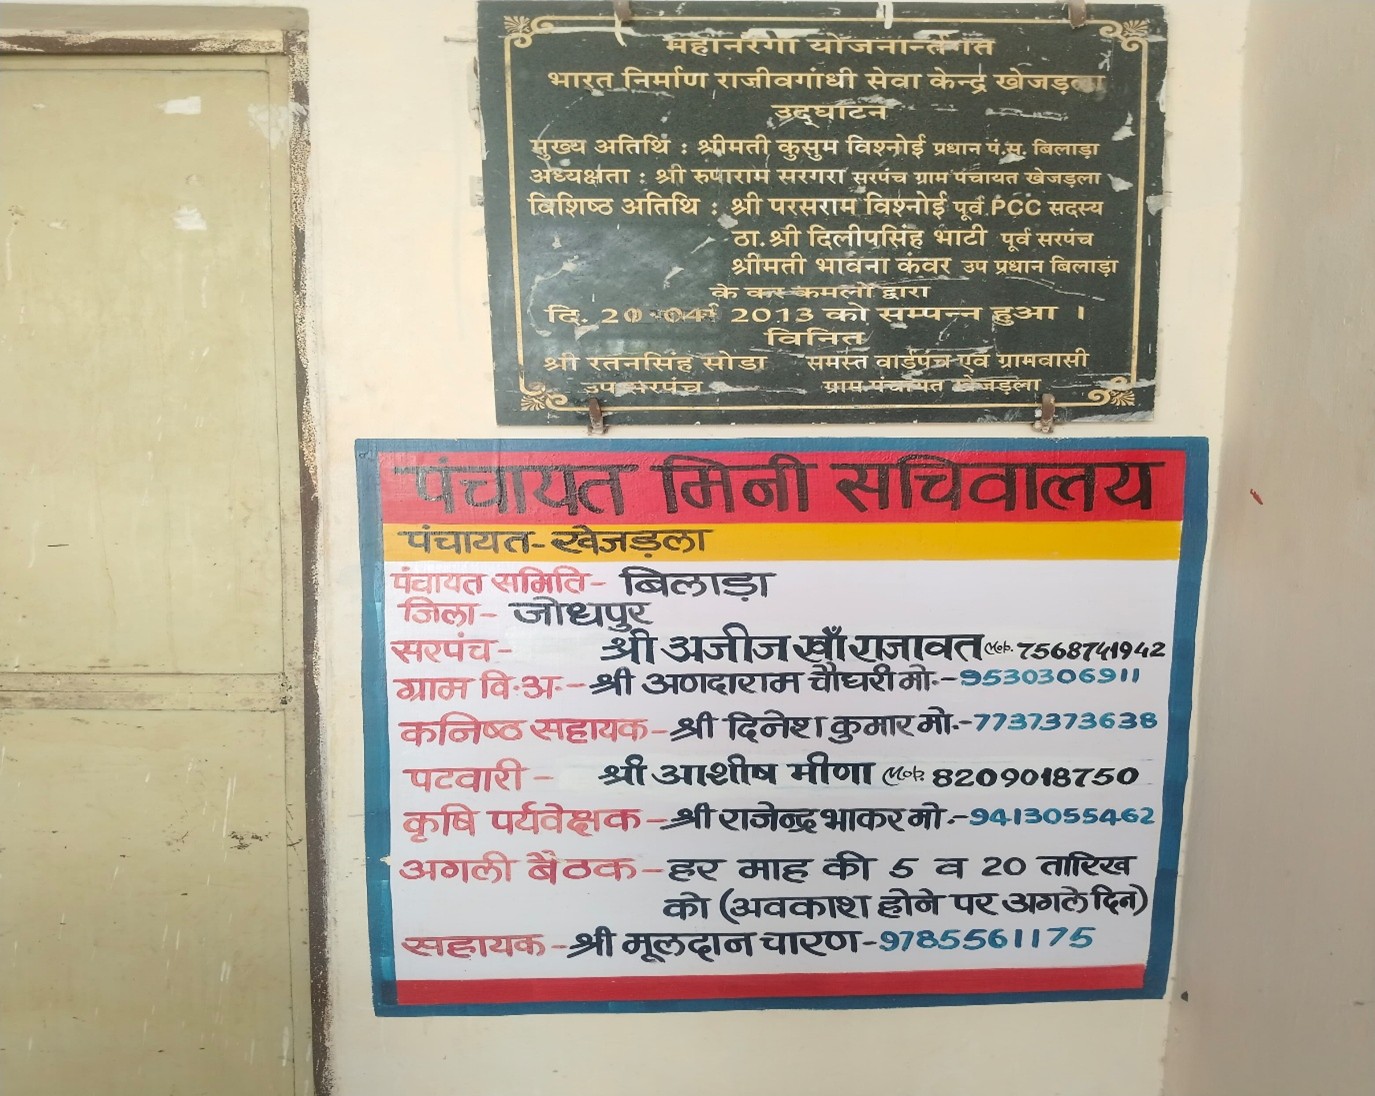 महानरेगा योजनान्तर्गत
भारत निर्माण राजीवगांधी सेवा केन्द्र खेजड़ला
उद्घाटन
मुख्य अतिथि : श्रीमती कुसुम विश्नोई प्रधान पं.स. बिलाड़ा
अध्यक्षता : श्री रुपाराम सरगरा सरपंच ग्राम पंचायत खेजड़ला
विशिष्ठ अतिथि : श्री परसराम विश्नोई पूर्व PCC सदस्य
ठा. श्री दिलीपसिंह भाटी पूर्व सरपंच
श्रीमती भावना कंवर उप प्रधान बिलाड़ा
के कर कमलों द्वारा
दि. 20 2013 को सम्पन्न हुआ ।
विनित
श्री रतनसिंह सोडा समस्त वार्डपंच एवं ग्रामवासी
उप सरपंच ग्राम पंचायत खेजड़ला
पंचायत मिनी सचिवालय
पंचायत- खेजड़ला
पंचायत समिति- बिलाड़ा
जिला- जोधपुर
सरपंच- श्री अजीज खाँ राजावत Mob. 7568741942
ग्राम वि.अ.- श्री अणदाराम चौधरी मो.- 9530306911
कनिष्ठ सहायक- श्री दिनेश कुमार मो.- 7737373638
पटवारी- श्री आशीष मीणा Mob. 8209018750
कृषि पर्यवेक्षक- श्री राजेन्द्र भाकर मो.- 9413055462
अगली बैठक- हर माह की 5 व 20 तारिख
को (अवकाश होने पर अगले दिन)
सहायक- श्री मूलदान चारण- 9785561175